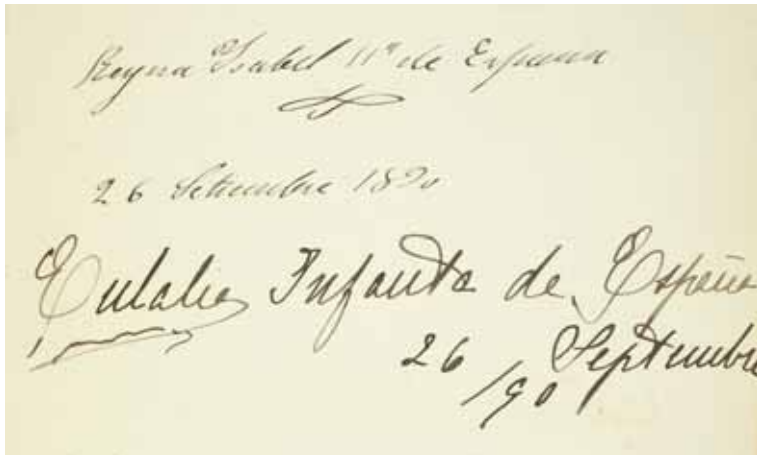 Reyna Isabel IIª de España
26 Setiembre 1890
Eulalia Infanta de España
26 Septembre
/90